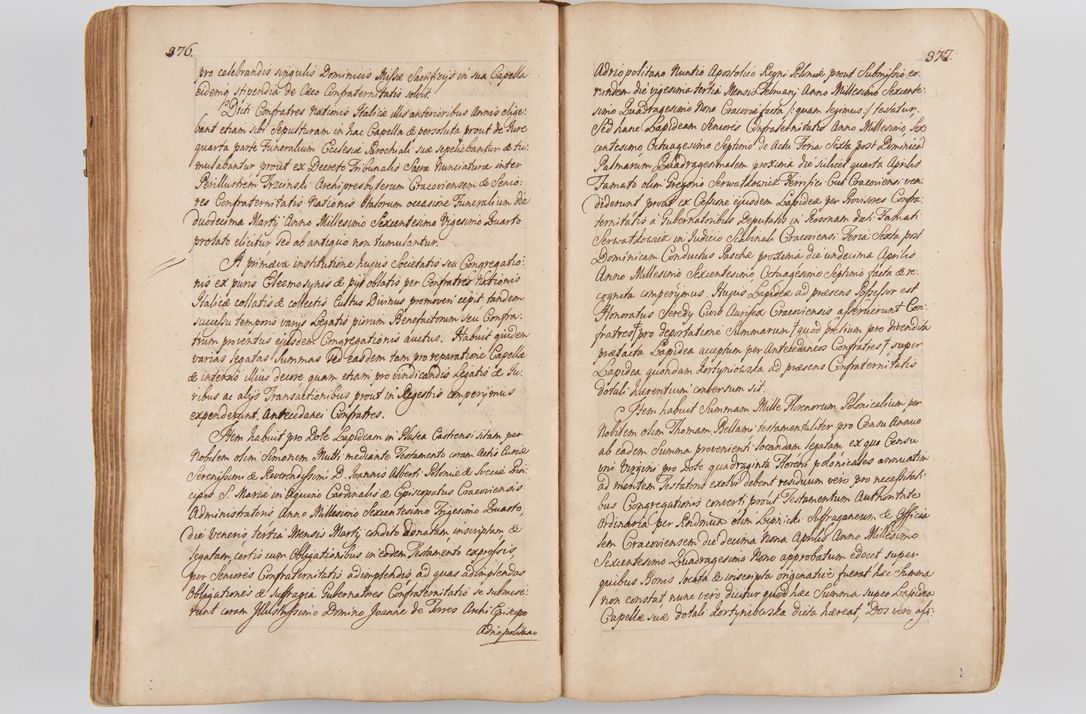 376.
pro celebrandis singulis Dominicis Missæ Sacrificijs in sua Capella
eidemq stipendia de Cæo Confraternitatis solvit.
Dicti Confratres Nationis Italicæ illis anterioribus Annis elige-
bant etiam sibi Sepulturam in hac Capella & persoluta prout de Jure
quarta parte Funeralium Ecclesiæ Parochiali suæ sepeliebantur & tu-
mulabantur prout ex Decreto Tribunalis Sacræ Nunciaturæ inter
Perillustrem Trzcinski Archipresbyterum Cracoviensem & Senio-
res Confraternitatis Nationis Italorum occasione Funeralium die
duodecima Martij Anno Millesimo Sexcentesimo Vigesimo Quarto
prolato elicitur sed ab antiquo non tumulantur.
A primæva institutione hujus Societatis seu Congregatio-
nis ex puris Eleemosynis & oblatis per Confratres Nationis
Italicæ collatis & collectis Cultus Divinus promoveri cepit tandem
successu temporis varijs Legatis piorum Benefactorum seu Confra-
trum proventus ejusdem Congregationis auctus. Habuit quidem
varias legatas Summas sed easdem tam pro reparatione Capellæ
& interno illius decore quam etiam pro vindicandis Legatis & Ju-
ribus ac alijs Transactionibus prout in Regestris comperijmus
expenderunt Antecedanei Confratres.
Item habuit pro Dote Lapideam in Platea Castrensi sitam per
Nobilem olim Simonem Mutti mediante Testamento coram Actis Curiæ
Serenissimi & Reverendissimi D. Joannis Alberti Poloniæ & Sveciæ Prin-
cipis S. Mariæ in Aquiro Cardinalis & Episcopatus Cracoviensis
Administratoris Anno Millesimo Sexcentesimo Trigesimo Quarto,
die Veneris tertia Mensis Martij condito donatam inscriptam &
legatam certis cum Obligationibus in eodem Testamento expressis,
per Seniores Confraternitatis adimplendis ad quas adimplendas
Obligationes & Suffragia Gubernatores Confraternitatis se submise-
runt coram Illustrissimo Domino Joanne de Torres Archi Episcopo
Adriopolitano
377.
Adriopolitano Nuntio Apostolico Regni Poloniæ prout Submissio eo-
rundem die vigesima tertia Mensis Februarij Anno Millesimo Sexcente-
simo Quadragesimo Nono Cracoviæ facta, /quam legimus/ testatur,
Sed hanc Lapideam Seniores Confraternitatis Anno Millesimo, Sex
centesimo Octuagesimo Septimo de Actu Feria Sexta post Dominicã
Palmarum Quadragesimalem proxima die scilicet quarta Aprilis
Famato olim Gregorio Serwatkowicz Ferrifici Civi Cracoviensi ven-
diderunt prout ex Cessione ejusdem Lapideæ per Provisores Confra-
ternitatis a Gubernatoribus Deputatis in Personam dicti Famati
Serwatkowicz in Judicio Scabinali Cracoviensi Feria Sexta post
Dominicam Conductus Paschæ proxima die undecima Aprilis
Anno Millesimo Sexcentesimo Octuagesimo Septimo facta & re-
cognita comperijmus. Hujus Lapideæ ad præsens Possessor est
Honoratus Seredy Civis Aurifex Cracoviensis asseruerunt Con-
fratres pro deportatione Summarum quod pretium pro divendita
præfacta Lapidea acceptum per Antecedaneos Confratres super
Lapidea quondam Fortyniowska ad præsens Confraternitatis
dotali hærentium conversum sit.
Item habuit Summam Mille Florenorum Polonicalium per
Nobilem olim Thomam Bellami testamentaliter pro Censu Annuo
ab eadem Summa provenienti locandam legatam ex quo Censu
uni Virgini pro Dote quadraginta Florenos polonicales annuatim
ad mentem Testatoris exolvi debent residuum vero pro necessitati-
bus Congregationis converti, prout Testamentum Authoritate
Ordinaria per Rndmum olim Lipnicki Suffraganeum & Officia
lem Cracoviensem die decima Nona Aprilis Anno Millesimo
Sexcentesimo Quadragesimo Nono approbatum edocet super
quibus Bonis locata & inscripta originative fuerat hæc Summa
non constat nunc vero dicitur quod hæc Summa super Lapidea
Capellæ suæ dotali Fortyniowska dicta hæreat, Dos vero assi-